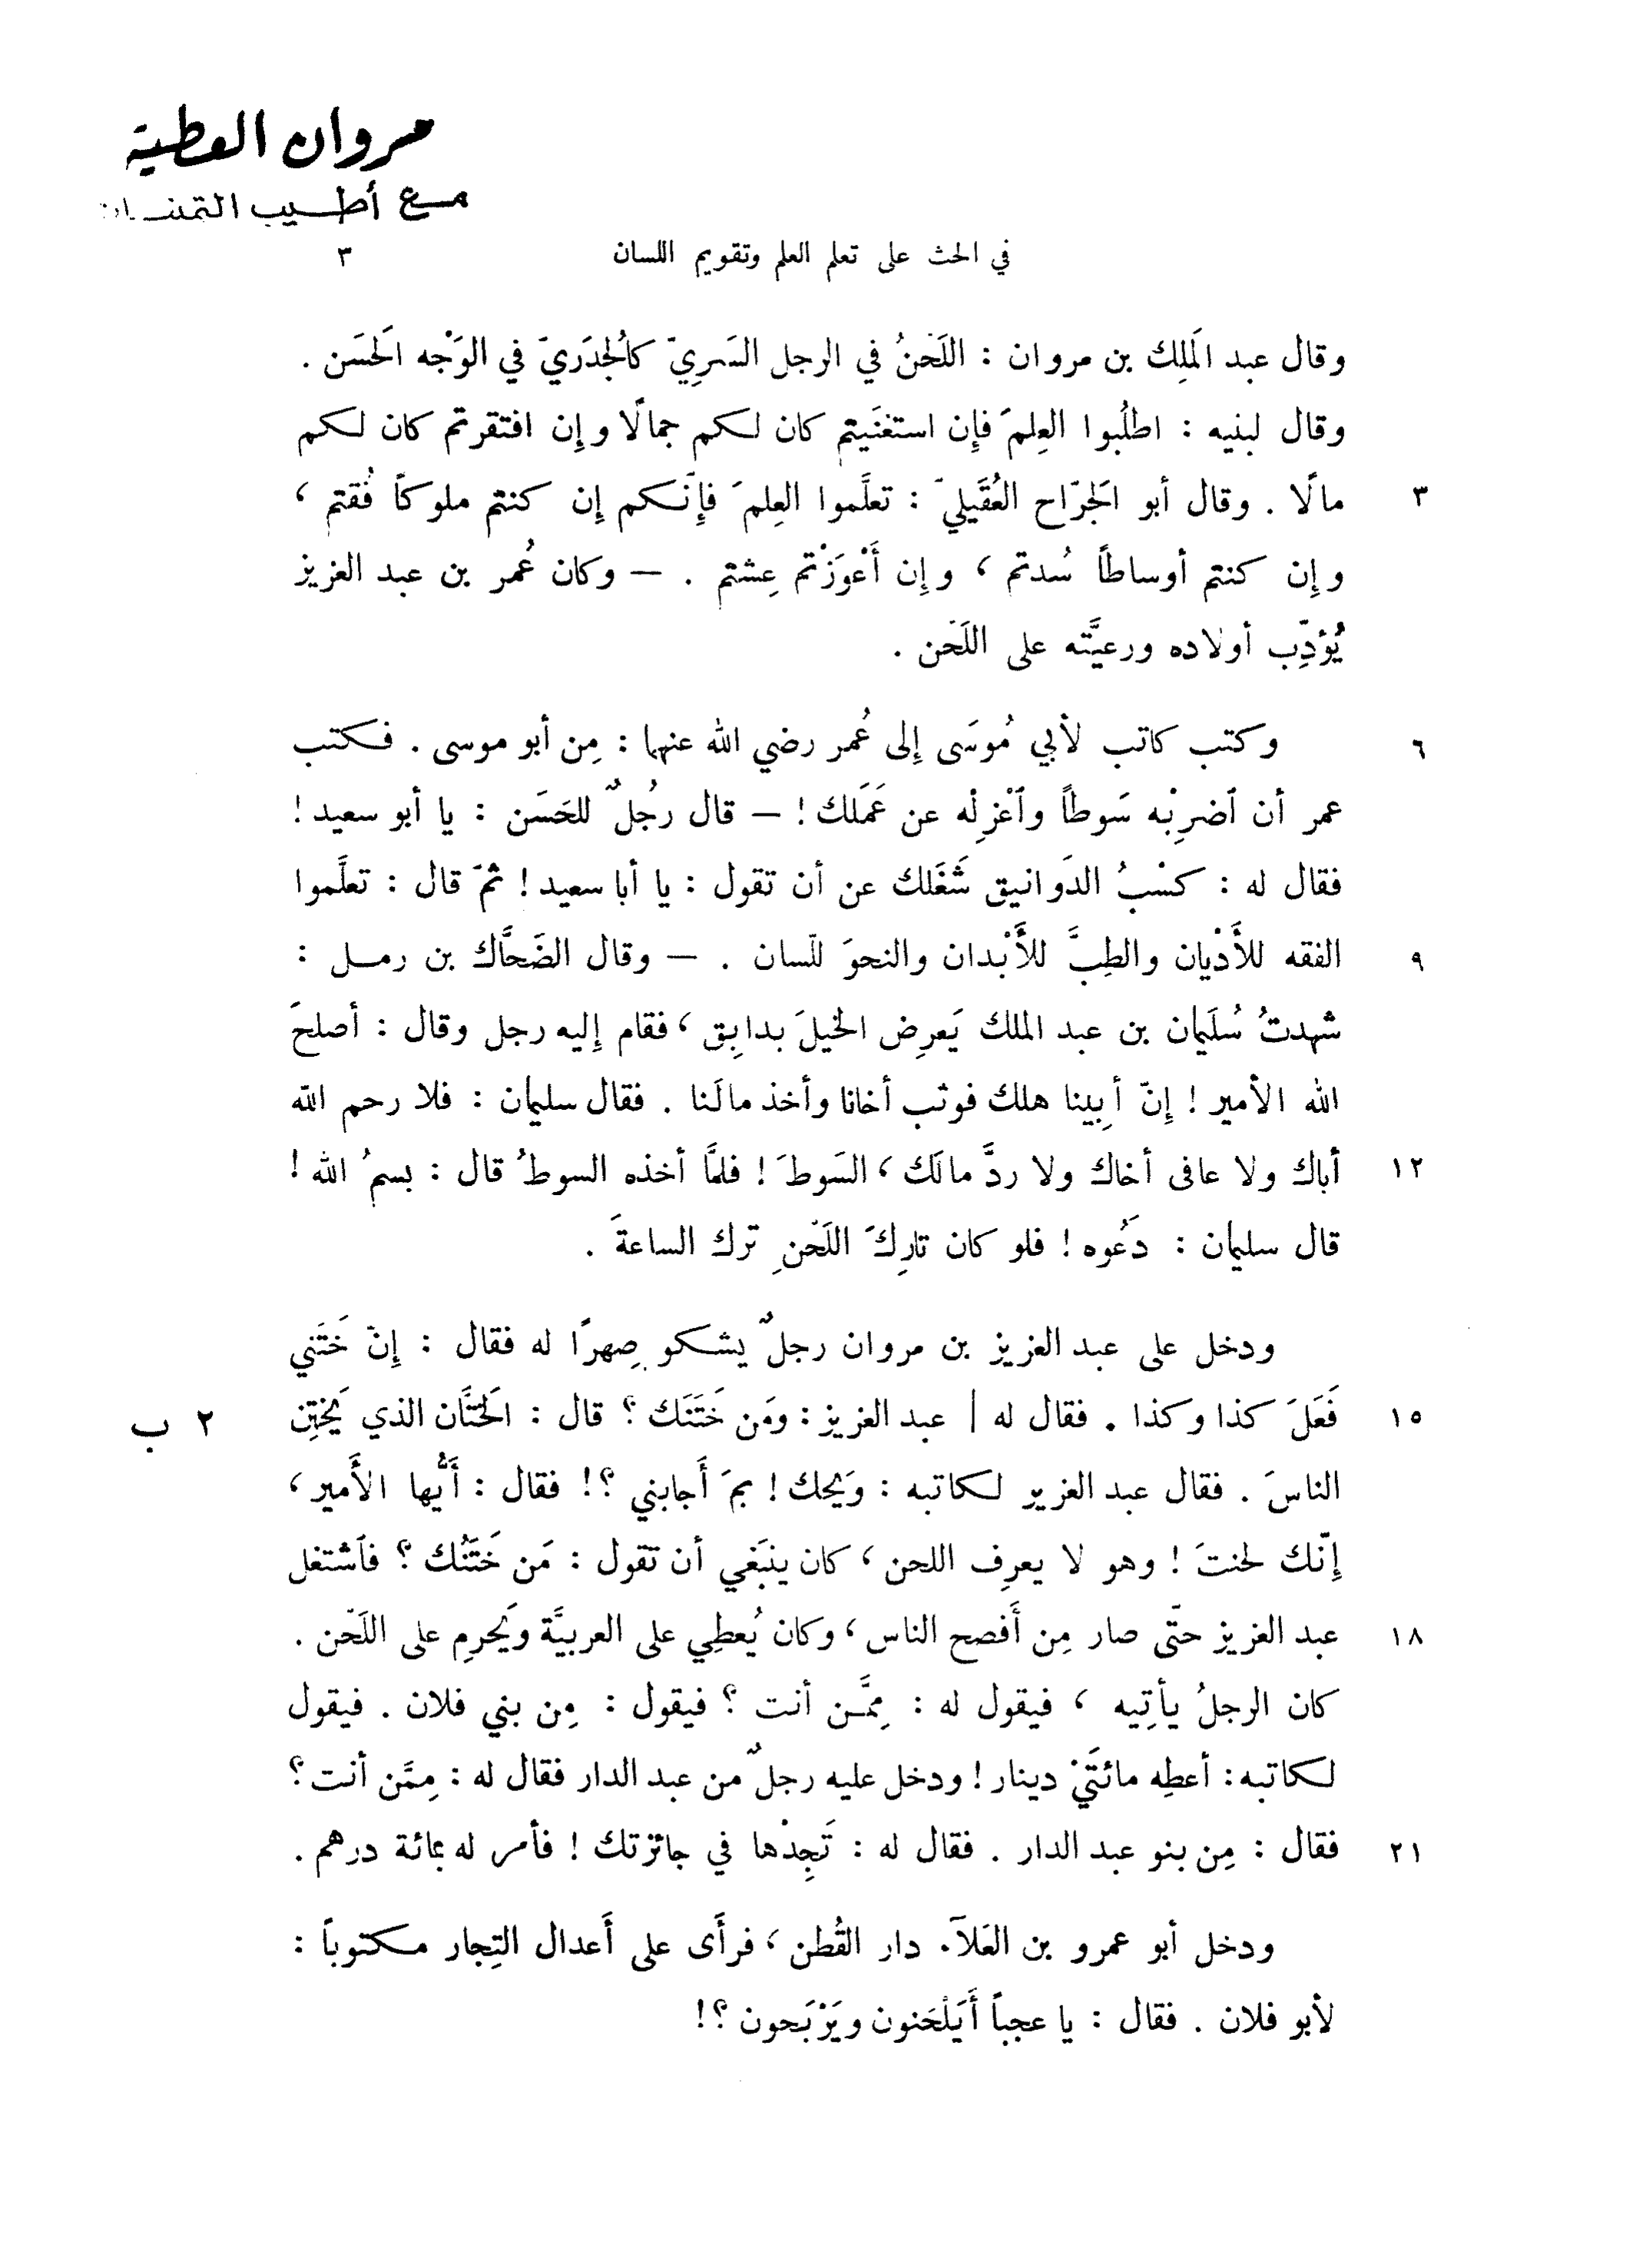 مروان العطية
مع أطيب
في الحث على تعلم العلم وتقويم اللسان ٣
وقال عبد المَلِك بن مروان : اللَحْنُ في الرجل السَرِيّ كالْجُدَريّ في الوَجْه الحَسَن .
وقال لبنيه : اطلُبوا العِلمَ فإِن استغنَيتم كان لكم جمالًا وإِن افتقرتم كان لكم
٣ مالًا . وقال أبو الجَرّاح العُقَيليّ : تعلَّموا العِلمَ فإِنّكم إِن كنتم ملوكاً فُقتم ،
وإِن كنتم أوساطاً سُدتم ، وإِن أَعْوَزْتم عِشتم . — وكان عُمر بن عبد العزيز
يُؤدِّب أولاده ورعيَّته على اللَحْن .
٦ وكتب كاتب لأبي مُوسَى إِلى عُمر رضي الله عنهما : مِن أبو موسى . فكتب
عمر أن ٱضرِبْه سَوطاً وٱعْزِلْه عن عَمَلك ! — قال رجُلٌ للحَسَن : يا أبو سعيد !
فقال له : كسْبُ الدَوانيق شَغَلك عن أن تقول : يا أبا سعيد ! ثمّ قال : تعلَّموا
٩ الفقه للأَدْيان والطِبَّ للأَبْدان والنحوَ للّسان . — وقال الضَحَّاك بن رمل :
شهدتُ سُلَيمان بن عبد الملك يَعرِض الخيلَ بدابِق ، فقام إِليه رجل وقال : أصلحَ
الله الأمير ! إِنّ أبِينا هلك فوثب أخانا وأخذ مالَنا . فقال سليمان : فلا رحم الله
١٢ أباك ولا عافى أخاك ولا ردَّ مالَك ، السَوطَ ! فلمَّا أخذه السوطُ قال : بسمُ الله !
قال سليمان : دَعُوه ! فلو كان تارِكَ اللَحْنِ ترك الساعةَ .
ودخل على عبد العزيز بن مروان رجلٌ يشكو صِهرًا له فقال : إِنّ خَتَني
١٥ فَعَلَ كذا وكذا . فقال له | عبد العزيز : ومَن خَتَنَك ؟ قال : الخَتَّان الذي يَختِن ٢ ب
الناسَ . فقال عبد العزيز لكاتبه : وَيْحك ! بمَ أَجابني ؟! فقال : أَيُّها الأَمير ،
إِنّك لحنتَ ! وهو لا يعرِف اللحن ، كان ينبَغي أن تقول : مَن خَتَنُك ؟ فٱشتغل
١٨ عبد العزيز حتّى صار مِن أَفصح الناس ، وكان يُعطِي على العربيَّة ويَحرِم على اللَحْن .
كان الرجلُ يأتِيه ، فيقول له : مِمَّن أنت ؟ فيقول : مِن بني فلان . فيقول
لكاتبه : أعطِه مائتَيْ دينار ! ودخل عليه رجلٌ من عبد الدار فقال له : مِمَّن أنت ؟
٢١ فقال : مِن بنو عبد الدار . فقال له : تَجِدْها في جائزتك ! فأمر له بمائة درهم .
ودخل أبو عمرو بن العَلآء دار القُطن ، فرأَى على أَعدال التِجار مكتوباً :
لأبو فلان . فقال : يا عجباً أَيَلْحَنون ويَرْبَحون ؟!